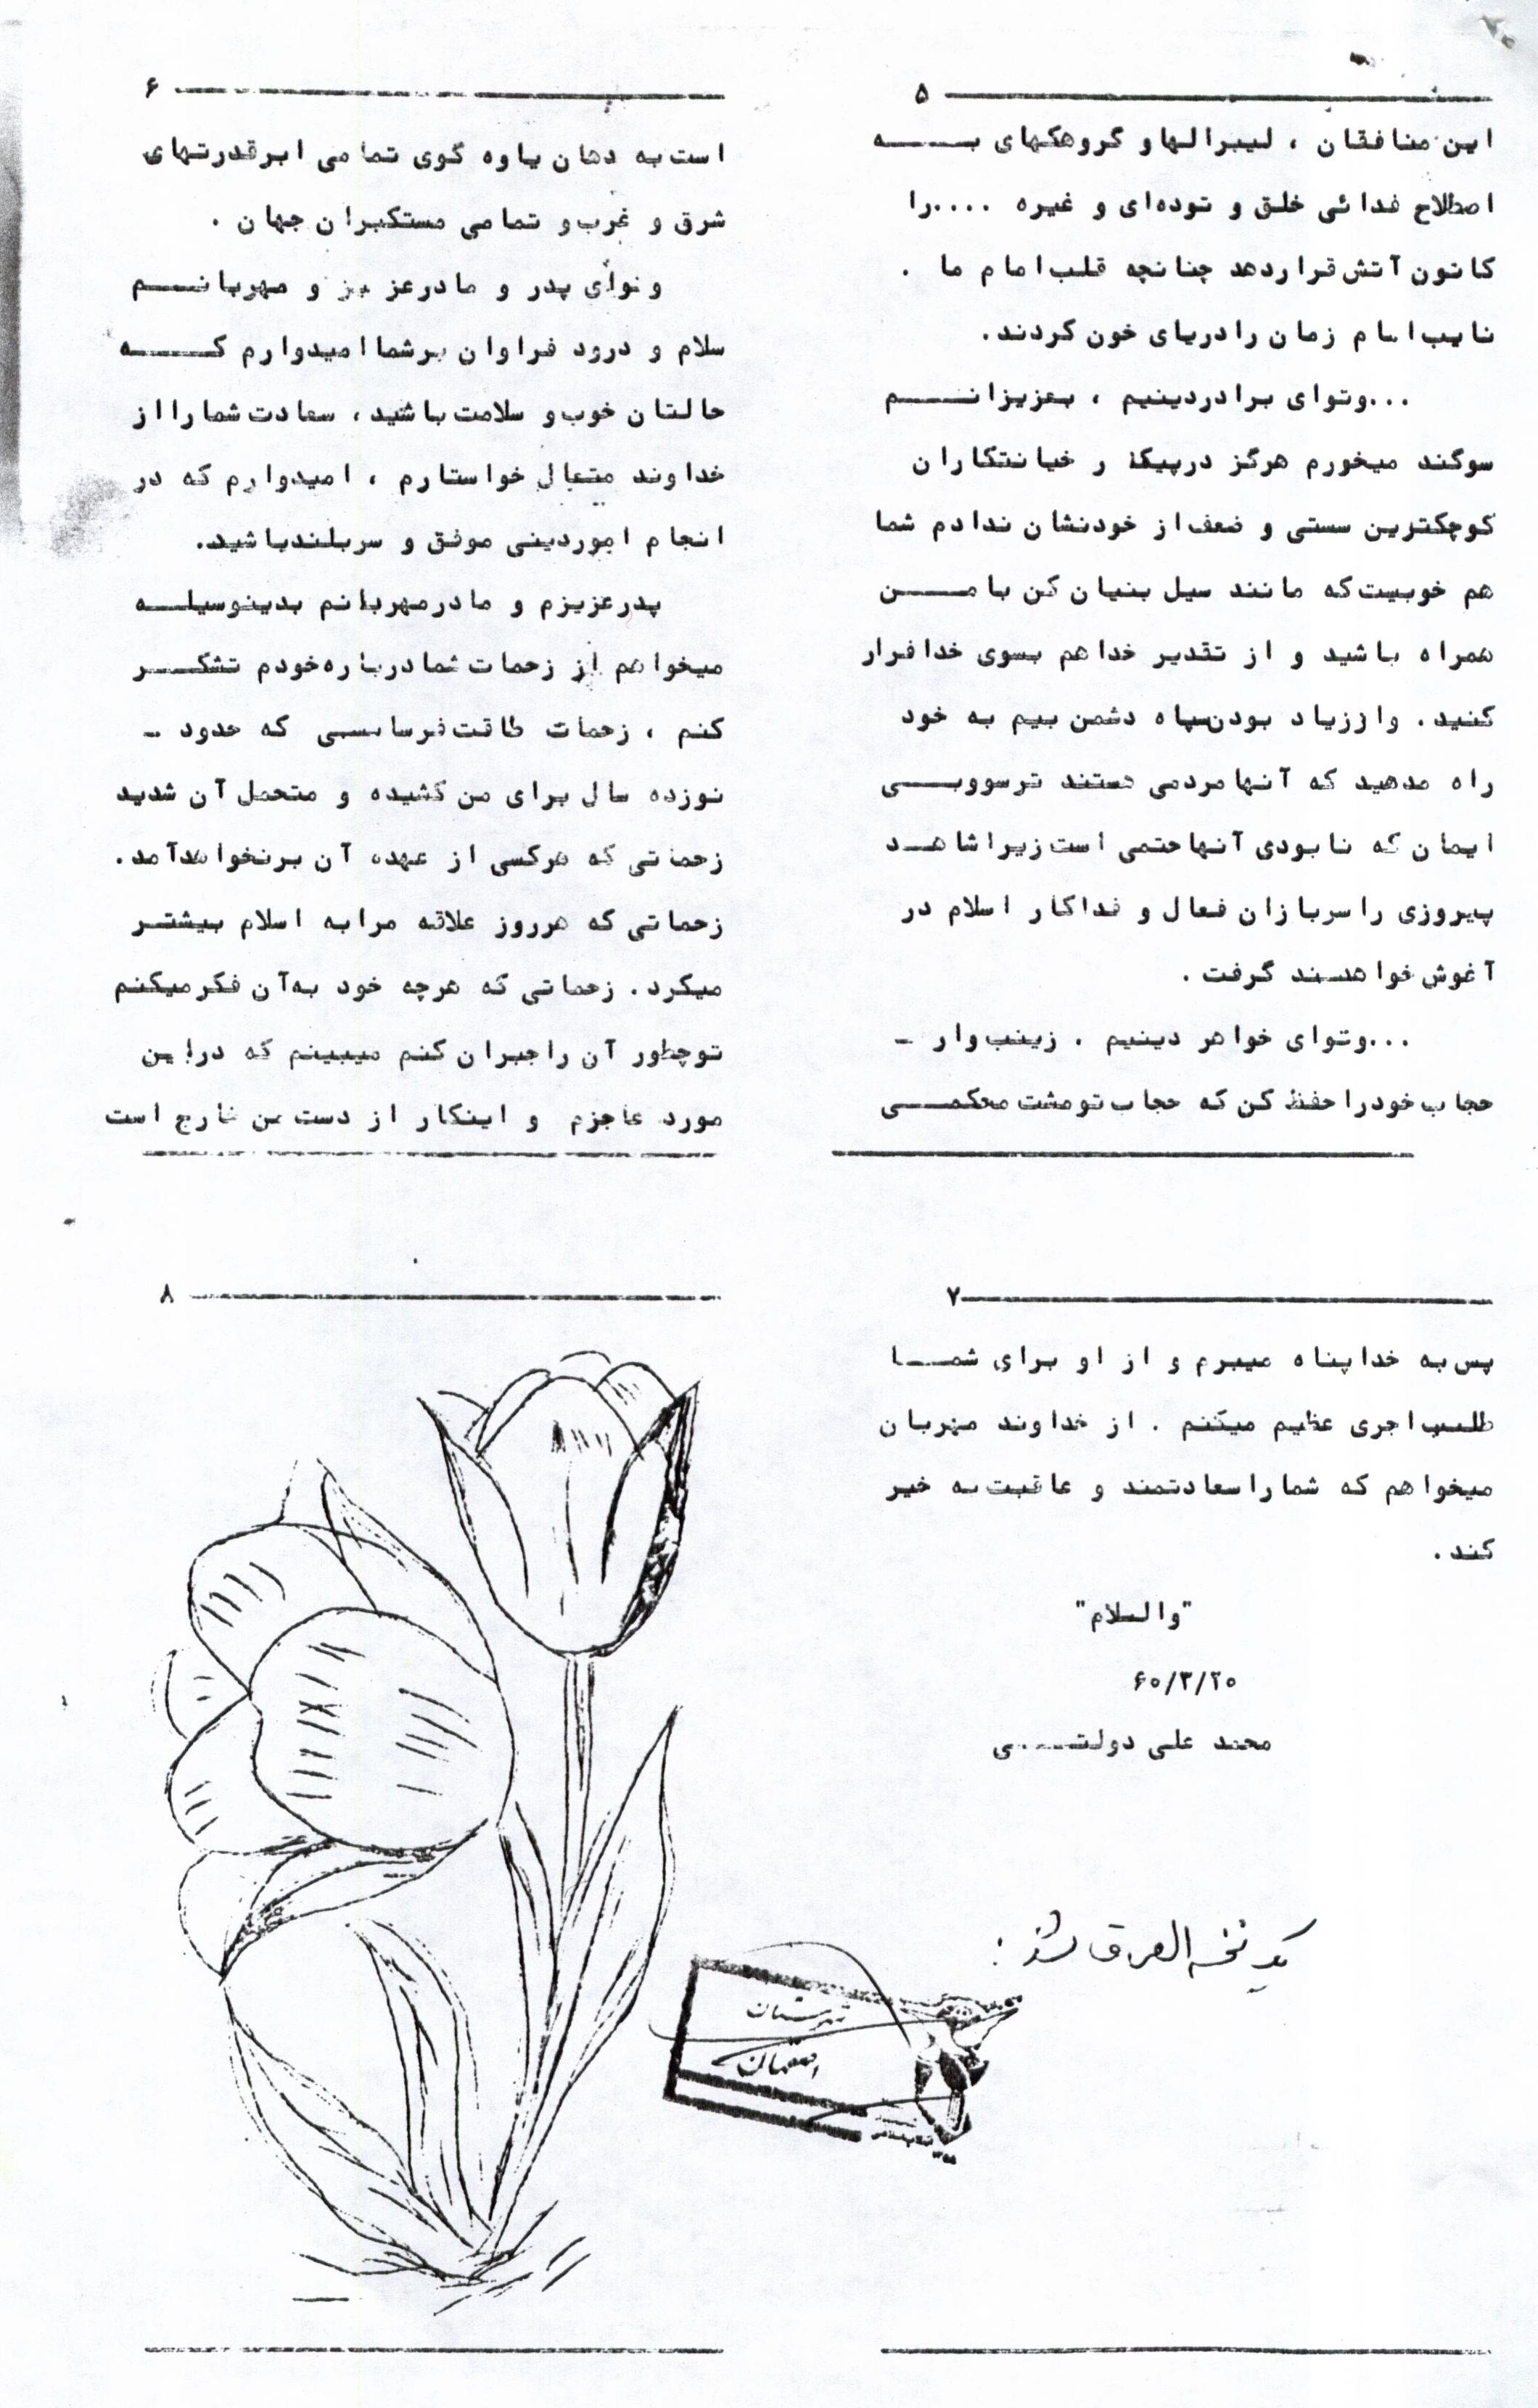 ۵
این منافقان ، لیبرالها و گروهکهای بـــه
اصطلاح فدائی خلق و توده‌ای و غیره ....را
کانون آتش قراردهد چنانچه قلب امام ما .
نایب امام زمان را دریای خون کردند.
...وتوای برادر دینیم ، بعزیزانـــم
سوگند میخورم هرگز درپیکا ر خیانتکاران
کوچکترین سستی و ضعف از خودنشان ندادم شما
هم خوبیت که مانند سیل بنیان کن با مـــن
همراه باشید و از تقدیر خدا هم بسوی خدا فرار
کنید. واززیاد بودن سپاه دشمن بیم به خود
راه مدهید که آنها مردمی هستند ترسووبـــی
ایمان که نابودی آنها حتمی است زیرا شاهــد
پیروزی را سربازان فعال و فداکار اسلام در
آغوش خواهــند گرفت .
...وتوای خواهر دینیم . زینب وار -
حجاب خودرا حفظ کن که حجاب تو مشت محکمـــی
۶
است به دهان یاوه گوی تمامی ابرقدرتهای
شرق و غرب و تمامی مستکبران جهان .
وتوای پدر و مادر عزیز و مهربانـــم
سلام و درود فراوان برشما امیدوارم کـــه
حالتان خوب و سلامت باشید، سعادت شما را از
خداوند متعال خواستارم ، امیدوارم که در
انجام امور دینی موفق و سربلند باشید.
پدر عزیزم و مادر مهربانم بدینوسیلــه
میخواهم از زحمات شما درباره خودم تشکـــر
کنم ، زحمات طاقت فرسایــی که حدود -
نوزده سال برای من کشیده و متحمل آن شدید
زحماتی که هرکسی از عهده آن برنخواهد آمد.
زحماتی که هرروز علاقه مرا به اسلام بیشتــر
میکرد. زحماتی که هرچه خود به آن فکر میکنم
توچطور آن را جبران کنم میبینم که در این
مورد عاجزم و اینکار از دست من خارج است
۷
پس به خدا پناه میبرم و از او برای شمــا
طلب اجری عظیم میکنم . از خداوند مهربان
میخواهم که شما را سعادتمند و عاقبت به خیر
کند.
"والسلام"
۶۰/۳/۲۰
محمد علی دولتـــی
شهرستان
اصفهان
۸